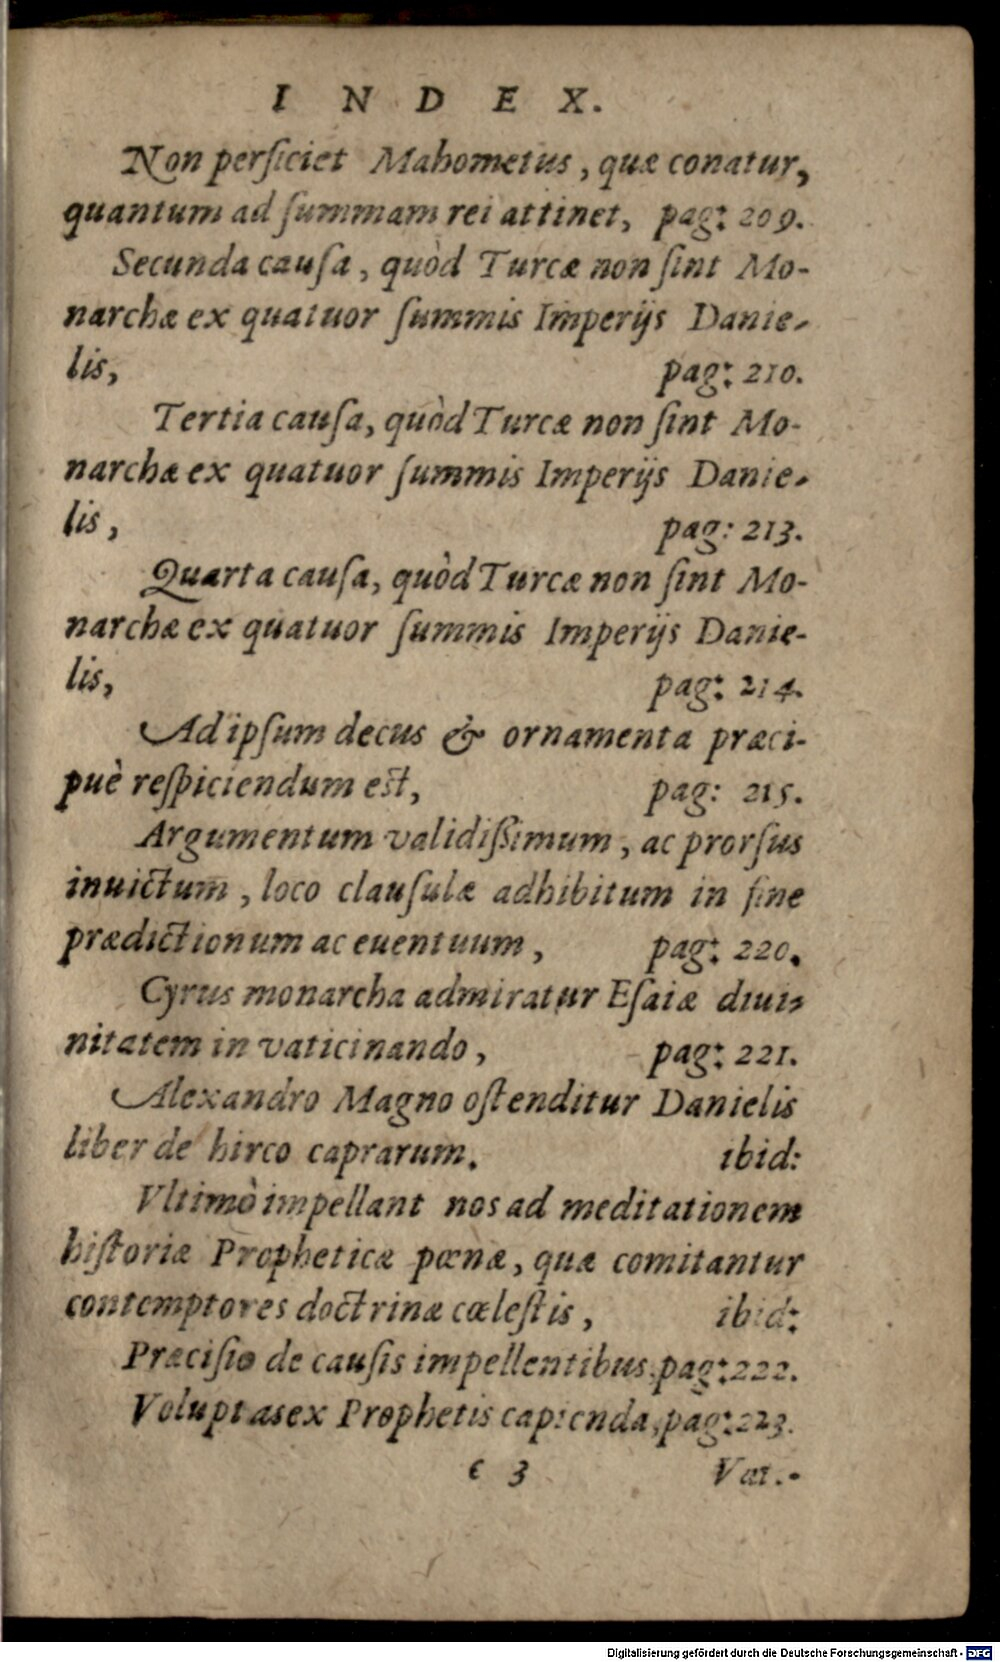 INDEX.
Non perficiet Mahometus, quæ conatur,
quantum ad ſummam rei attinet, pag: 209.
Secunda cauſa, quòd Turcæ non ſint Mo-
narchæ ex quatuor ſummis Imperijs Danie-
lis, pag: 210.
Tertia cauſa, quòd Turcæ non ſint Mo-
narchæ ex quatuor ſummis Imperijs Danie-
lis, pag: 213.
Quarta cauſa, quòd Turcæ non ſint Mo-
narchæ ex quatuor ſummis Imperijs Danie-
lis, pag: 214.
Ad ipſum decus & ornamenta præci-
puè reſpiciendum eſt, pag: 215.
Argumentum validiſſimum, ac prorſus
inuictum, loco clauſulæ adhibitum in fine
prædictionum ac euentuum, pag: 220.
Cyrus monarcha admiratur Eſaiæ diui-
nitatem in vaticinando, pag: 221.
Alexandro Magno oſtenditur Danielis
liber de hirco caprarum. ibid:
Vltimò impellant nos ad meditationem
hiſtoriæ Propheticæ pœnæ, quæ comitantur
contemptores doctrinæ cœleſtis, ibid:
Præciſio de cauſis impellentibus, pag: 222.
Voluptas ex Prophetis capienda, pag: 223.
c 3
Digitalisierung gefördert durch die Deutsche Forschungsgemeinschaft - DFG